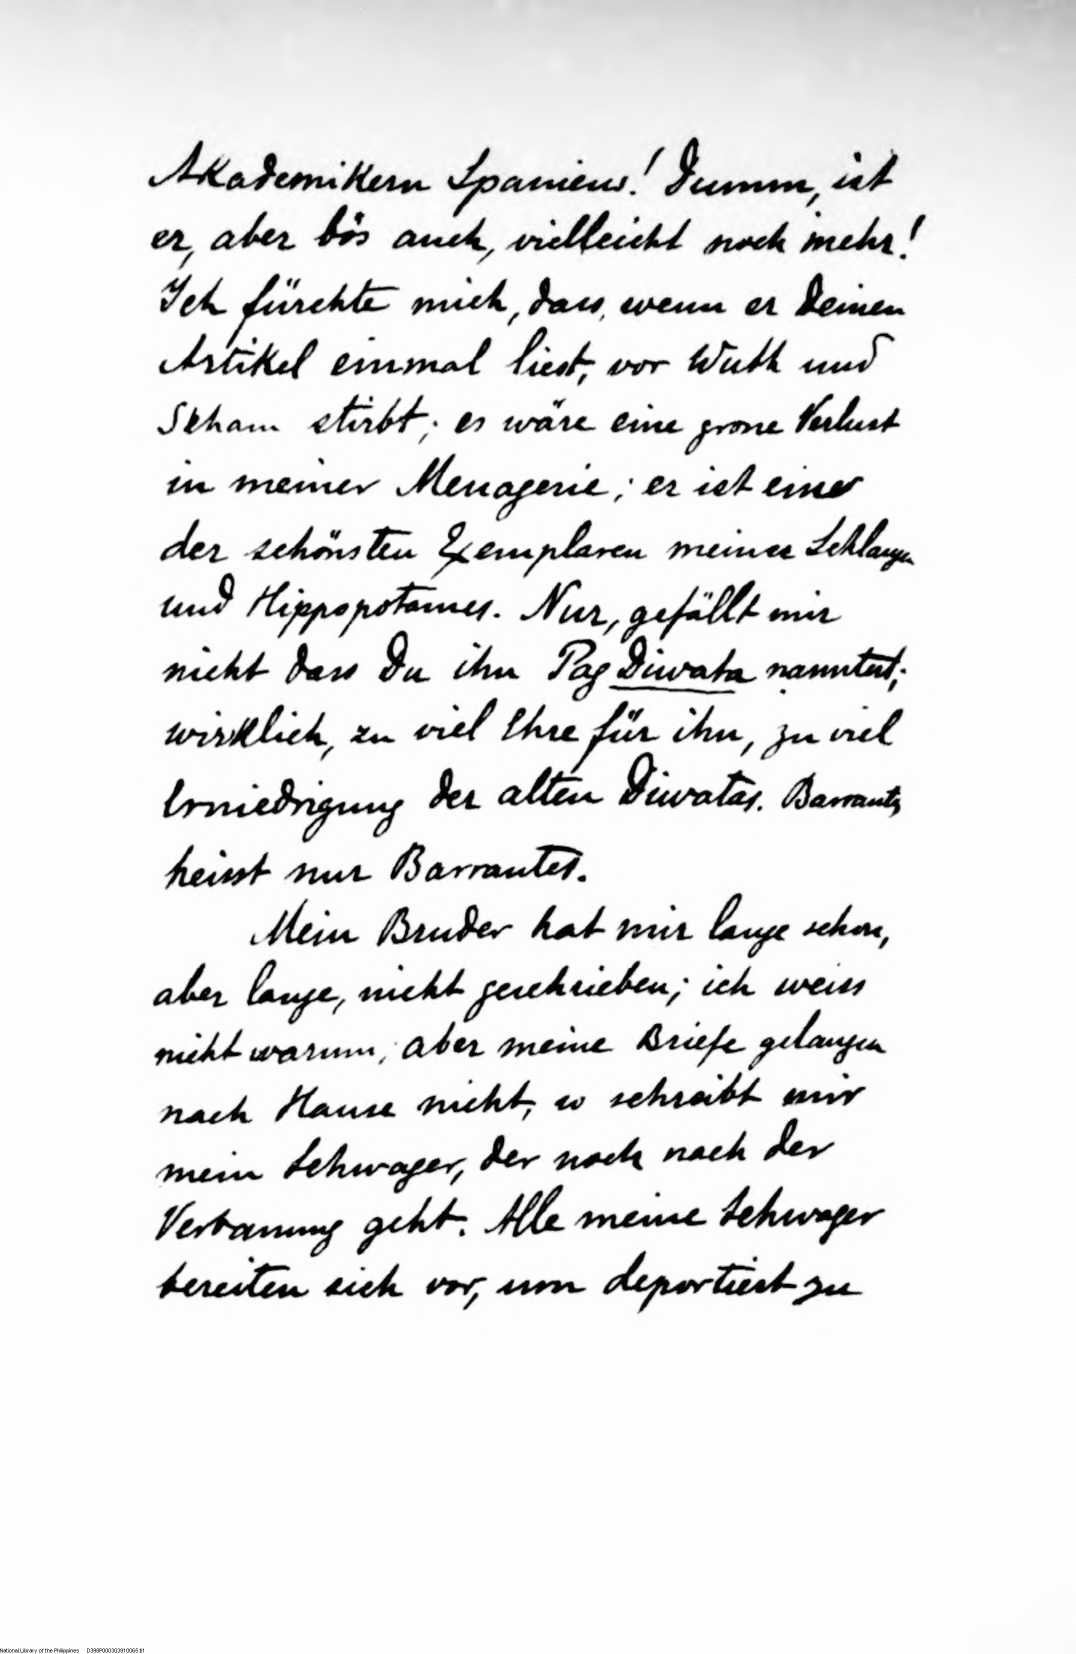 Akademikern Spaniens! Dumm, ist
er, aber bös auch, vielleicht noch mehr!
Ich fürchte mich, dass, wenn er Deinen
Artikel einmal liest, vor Wuth und
Scham stirbt; es wäre eine grosse Verlust
in meiner Menagerie; er ist einer
der schönsten Exemplaren meiner Schlangen
und Hippopotames. Nur, gefällt mir
nicht dass Du ihn Pag Diwata nanntest;
wirklich, zu viel Ehre für ihn, zu viel
Erniedrigung der alten Diwatas. Barrantes
heisst nur Barrantes.
Mein Bruder hat mir lange schon,
aber lange, nicht geschrieben; ich weiss
nicht warum; aber meine Briefe gelangen
nach Hause nicht, so schreibt mir
mein Schwager, der noch nach der
Verbannung geht. Alle meine Schwager
bereiten sich vor, um deportiert zu
National Library of the Philippines